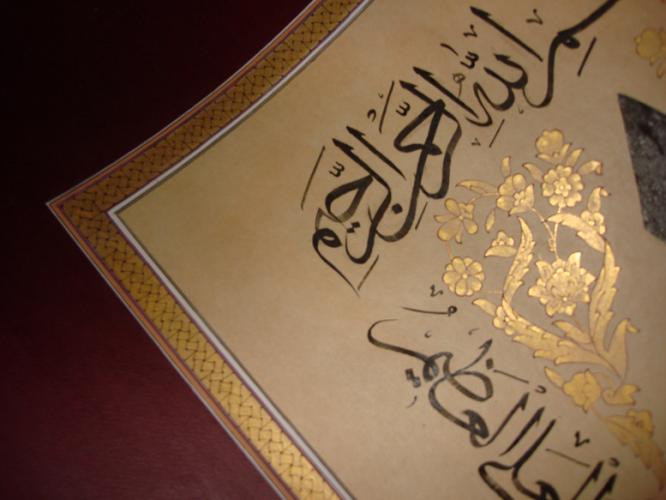 الله الرحمن الرحيم
العلي العظيم